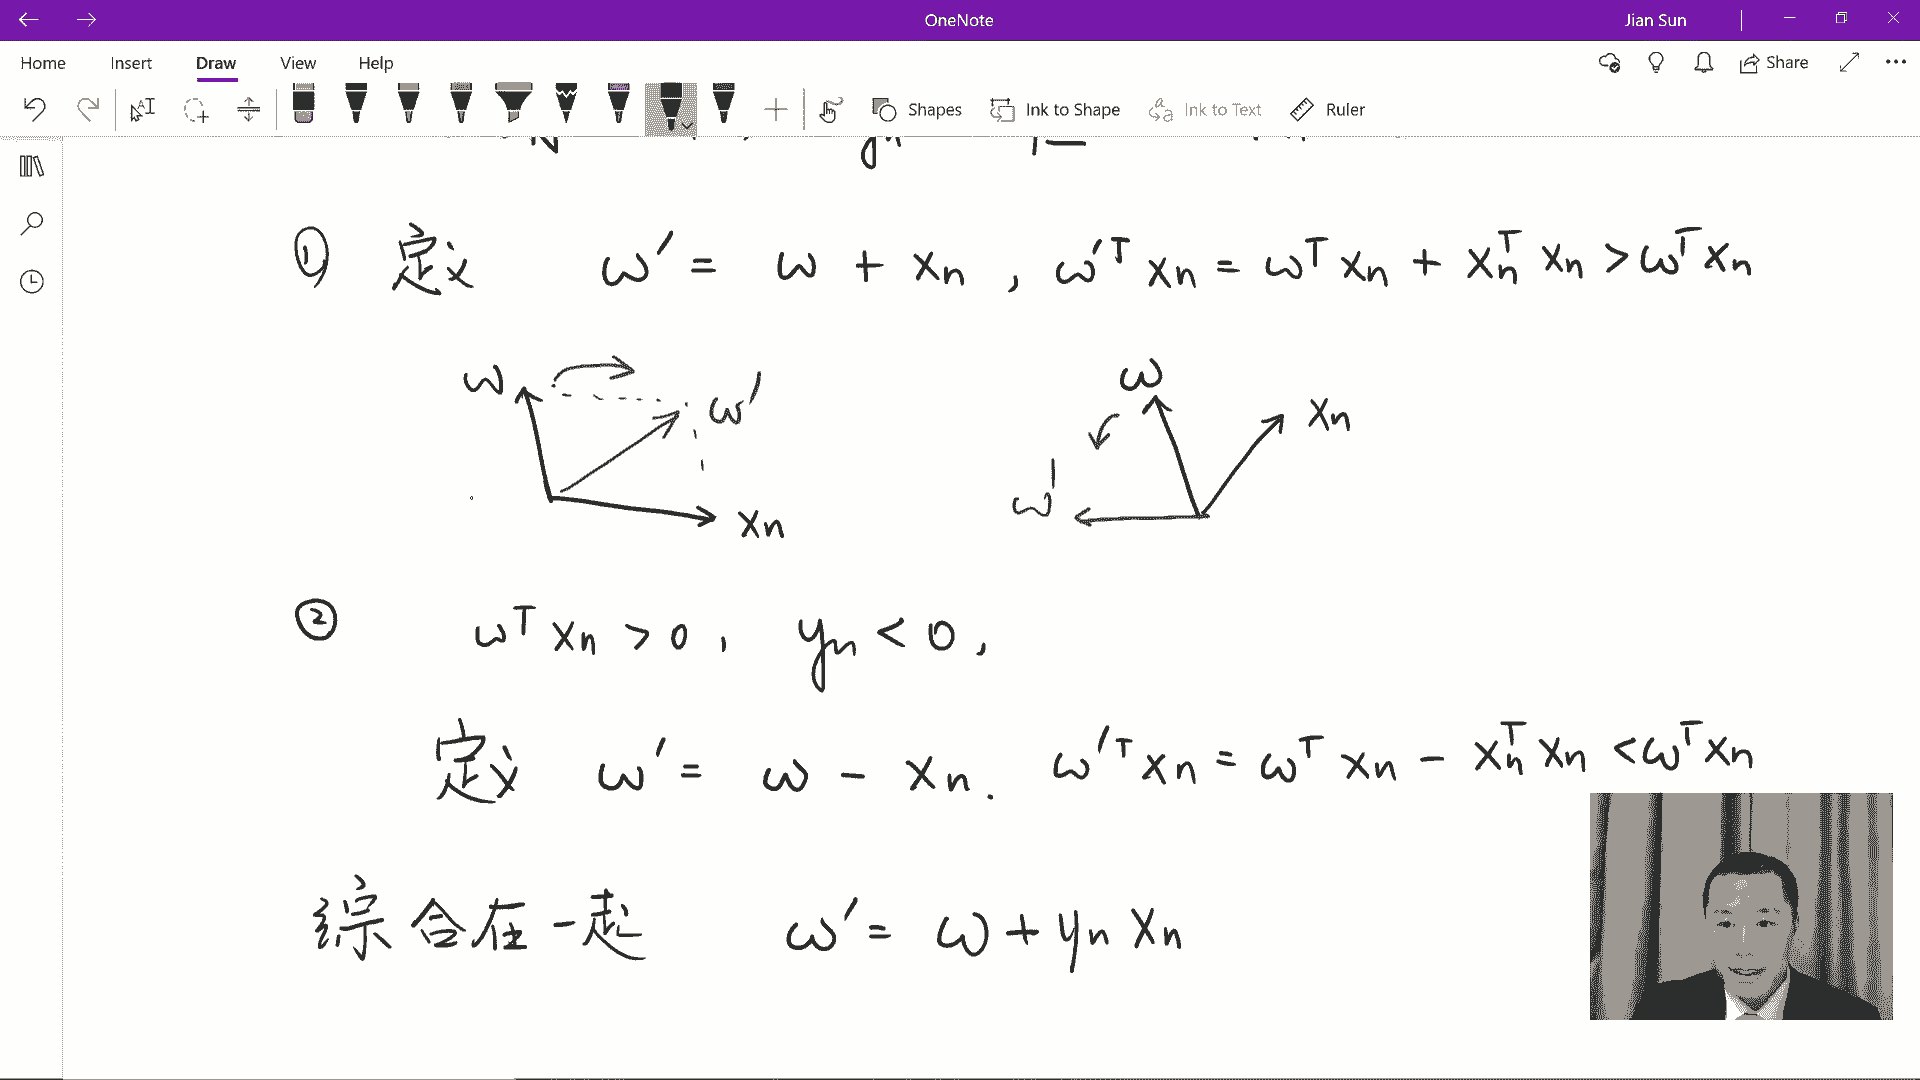 OneNote
Jian Sun
Home Insert Draw View Help
Share
Shapes Ink to Shape Ink to Text Ruler
① 定义 ω' = ω + xₙ , ω'ᵀ xₙ = ωᵀ xₙ + xₙᵀ xₙ > ωᵀ xₙ
ω ω' xₙ
ω xₙ ω'
② ωᵀ xₙ > 0 , yₙ < 0 ,
定义 ω' = ω - xₙ . ω'ᵀ xₙ = ωᵀ xₙ - xₙᵀ xₙ < ωᵀ xₙ
综合在一起 ω' = ω + yₙ xₙ